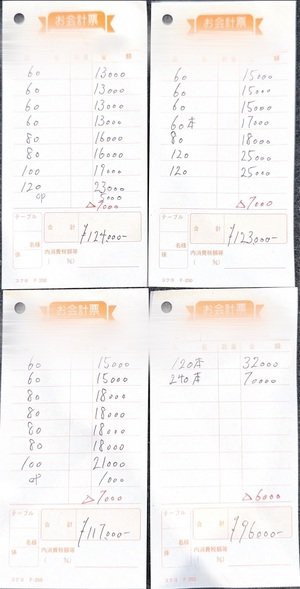 お会計票
60 13000
60 13000
60 13000
60 13000
80 16000
80 16000
100 19000
120 23000
op 5000
△7000
テーブル
合計 ¥124000-
名様
内消費税額等
( %)
係
コクヨ テ-250
お会計票
額
60 15000
60 15000
60 15000
60本 17000
80 18000
120 25000
120 25000
△7000
テーブル
合計 ¥123000-
名様
内消費税額等
( %)
係
コクヨ テ-250
お会計票
60 15000
60 15000
80 18000
80 18000
80 18000
80 18000
100 21000
op 1000
△7000
テーブル
合計 ¥117000-
名様
内消費税額等
( %)
係
コクヨ テ-250
お会計票
120本 32000
240本 70000
△6000
テーブル
合計 ¥96000-
名様
内消費税額等
( %)
係
コクヨ テ-250